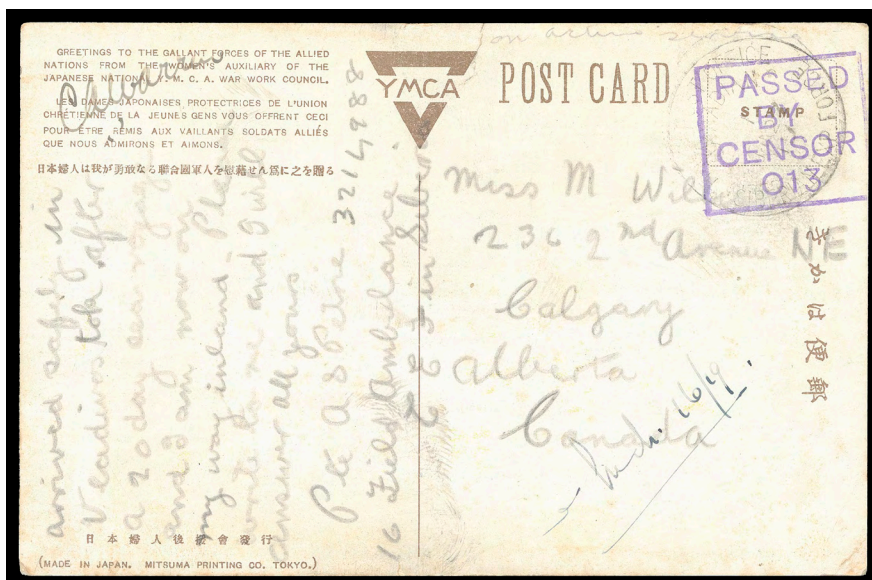 on active service
GREETINGS TO THE GALLANT FORCES OF THE ALLIED
NATIONS FROM THE WOMEN'S AUXILIARY OF THE
JAPANESE NATIONAL Y. M. C. A. WAR WORK COUNCIL.
LES DAMES JAPONAISES PROTECTRICES DE L'UNION
CHRÉTIENNE DE LA JEUNES GENS VOUS OFFRENT CECI
POUR ÊTRE REMIS AUX VAILLANTS SOLDATS ALLIÉS
QUE NOUS ADMIRONS ET AIMONS.
日本婦人は我が勇敢なる聯合國軍人を慰藉せん爲に之を贈る
YMCA
POST CARD
STAMP
PASSED
BY
CENSOR
013
きかは便郵
Miss M
236 2nd Avenue NE
Calgary
Alberta
Canada
16/19.
arrived safely in
after
a 20 day sea voyage
and I am now on
my way inland Please
write to me and I will
answer all yours
Pte A S Petrie 3214988
16 Field Ambulance
C E F in Siberia
日本婦人後援會發行
(MADE IN JAPAN. MITSUMA PRINTING CO. TOKYO.)